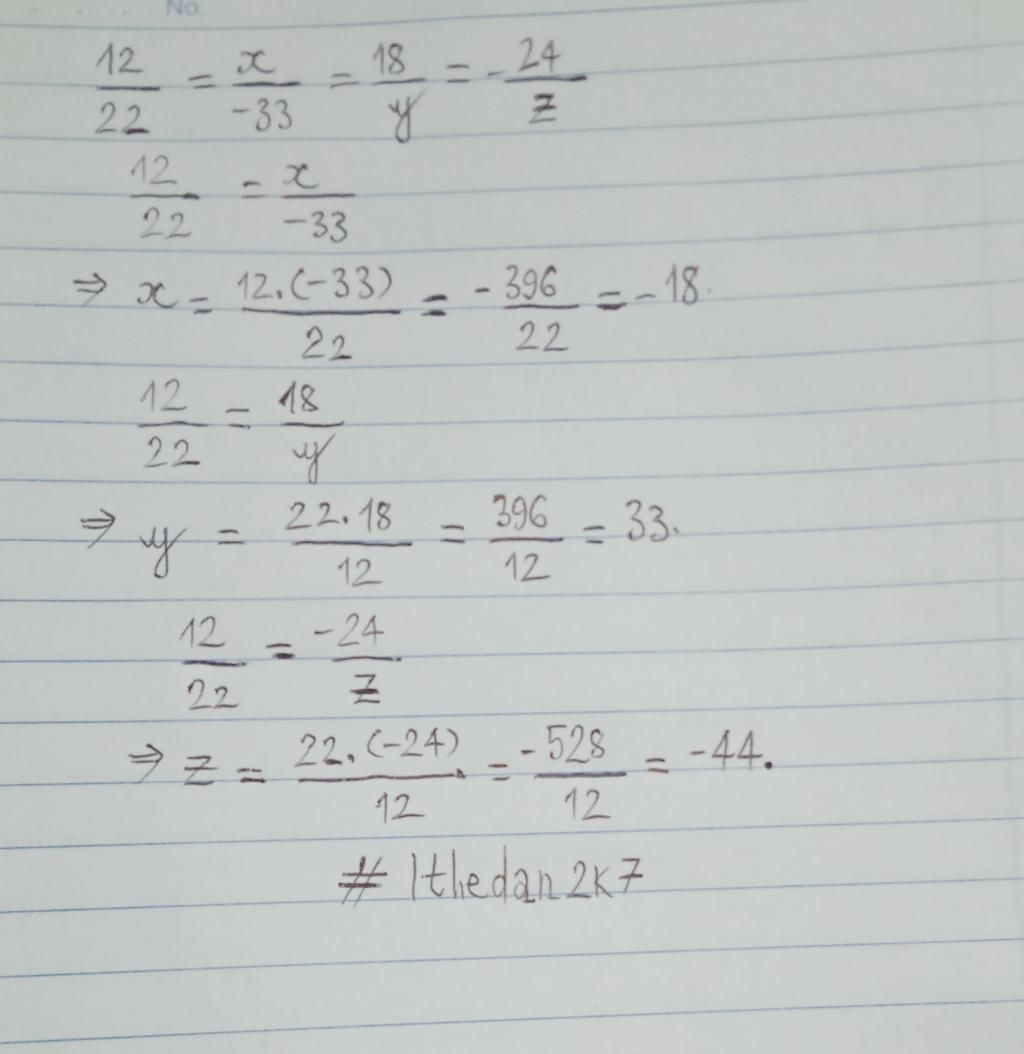 No.
12/22 = x/-33 = 18/y = -24/z
12/22 = x/-33
⇒ x = 12.(-33)/22 = -396/22 = -18.
12/22 = 18/y
⇒ y = 22.18/12 = 396/12 = 33.
12/22 = -24/z
⇒ z = 22.(-24)/12 = -528/12 = -44.
# lthedan2k7